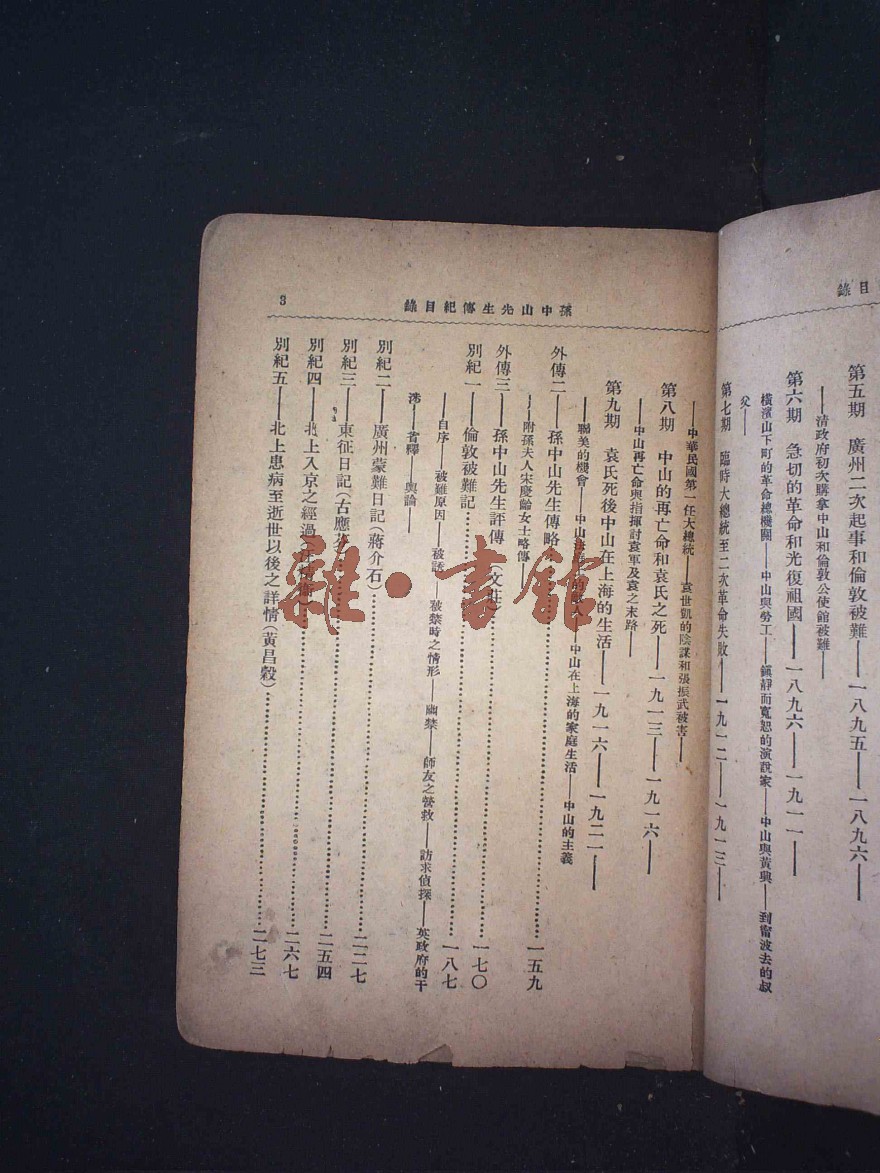 目錄
第五期 廣州二次起事和倫敦被難——一八九五——一八九六——
——清政府初次購拿中山和倫敦公使館被難——
第六期 急切的革命和光復祖國——一八九六——一九一一——
橫濱山下町的革命總機關——中山與勞工——鎮靜而寬恕的演說家——中山與黃興——到甯波去的叔
父——
第七期 臨時大總統至二次革命失敗——一九一二——一九一三——
孫中山先生傳紀目錄
3
——中華民國第一任大總統——袁世凱的陰謀和張振武被害——
第八期 中山的再亡命和袁氏之死——一九一三——一九一六——
——中山再亡命與指揮討袁軍及袁之末路——
第九期 袁氏死後中山在上海的生活——一九一六——一九二一——
——聯美的機會——中山 的 人——中山在上海的家庭生活——中山的主義
外傳二——孫中山先生傳略……一五九
——附孫夫人宋慶齡女士略傳——
外傳三——孫中山先生評傳(文莊)……一七〇
別紀一——倫敦被難記……一八七
自序——被難原因——被誘——被禁時之情形——幽禁——師友之營救——訪求偵探——英政府的干
涉——省釋——輿論——
別紀二——廣州蒙難日記(蔣介石)……二二七
別紀三——東征日記(古應芬)……二五四
別紀四——北上入京之經過……二六七
別紀五——北上患病至逝世以後之詳情(黃昌穀)……二七三
雜·書館